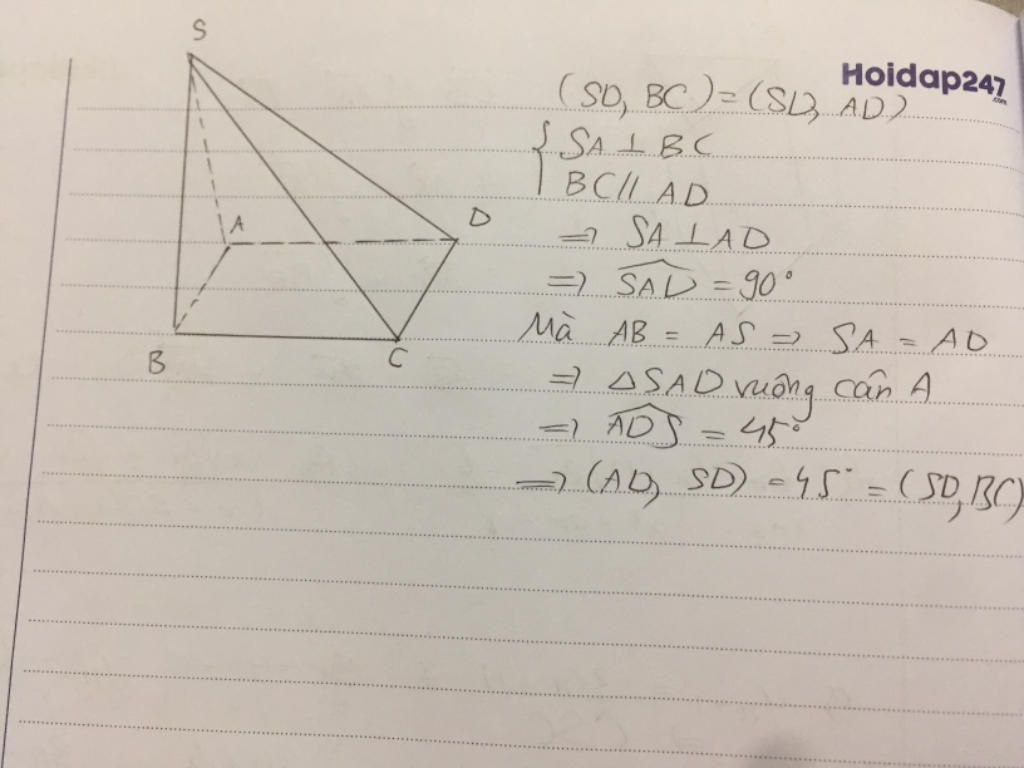 Hoidap247
.com
(SD, BC) = (SD, AD)
{ SA ⊥ BC
BC // AD
=> SA ⊥ AD
=> SAD = 90°
Mà AB = AS => SA = AD
=> ΔSAD vuông cân A
=> ADS = 45°
=> (AD, SD) = 45° = (SD, BC)
S
A
D
B
C